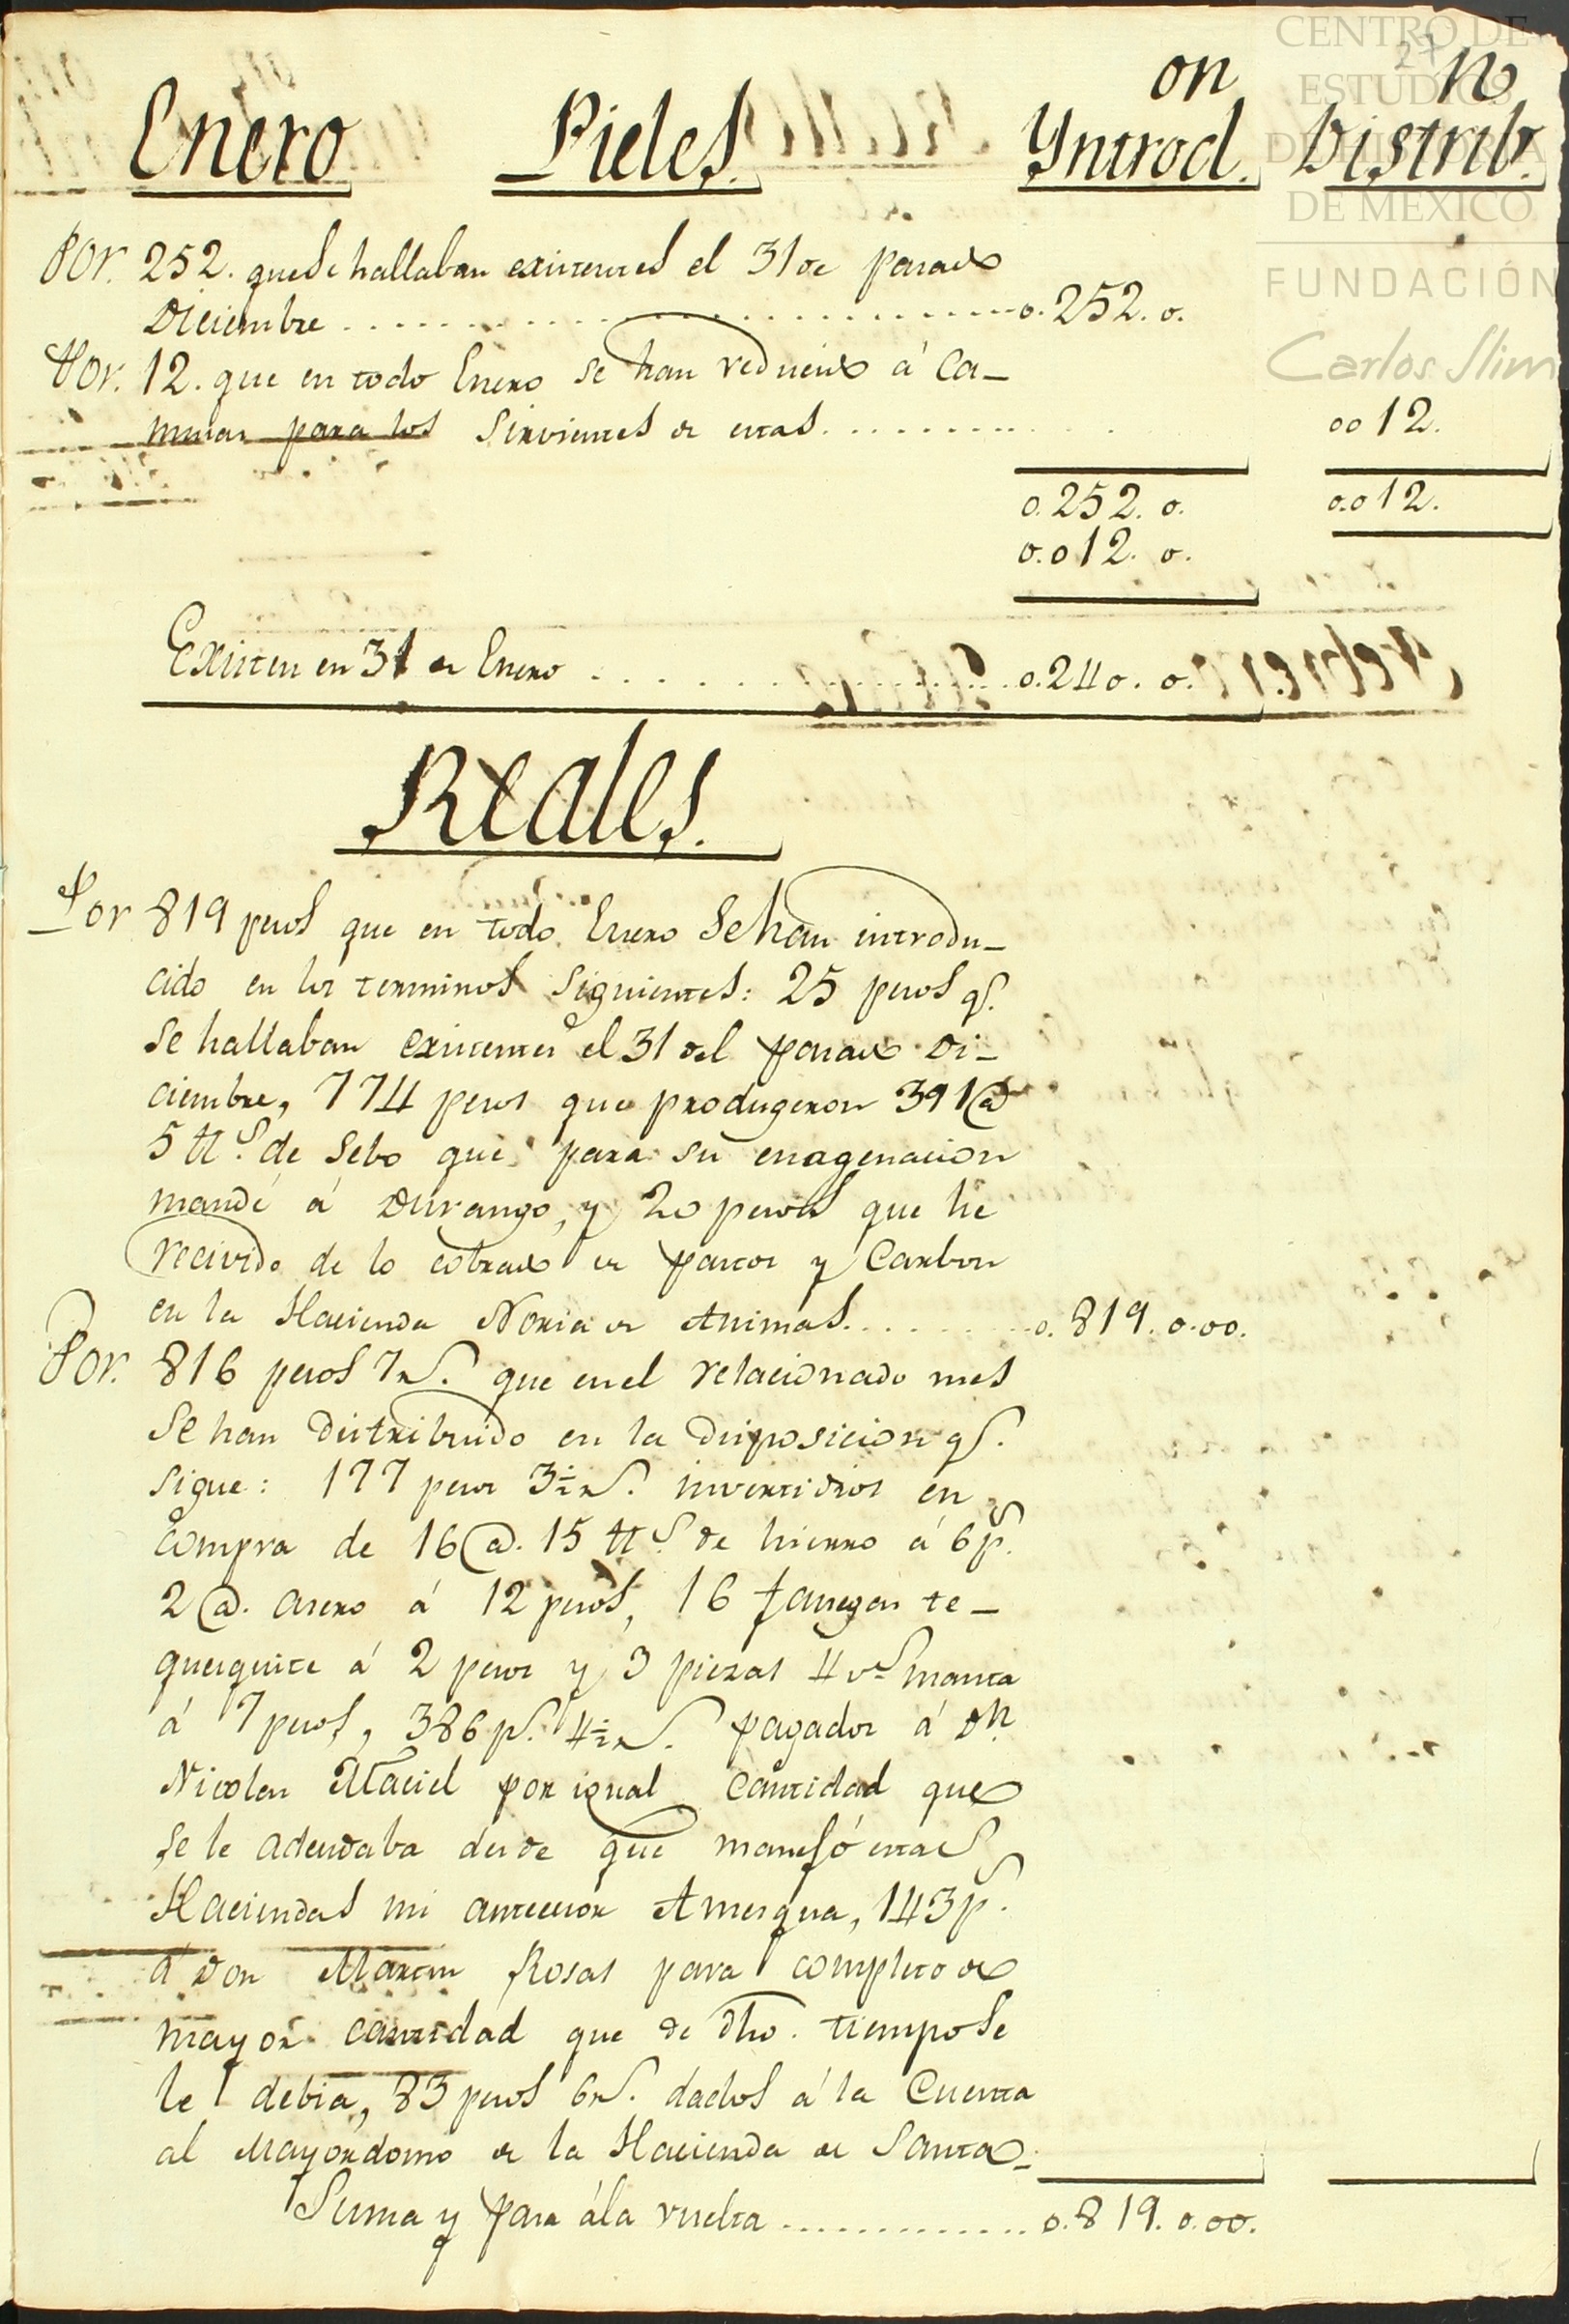 CENTRO DE
ESTUDIOS
DE HISTORIA
DE MEXICO
FUNDACIÓN
Carlos Slim
27
Enero Pieles. Yntrod.on Distrib.n
Por. 252. que se hallaban existentes el 31 de pasado
Diciembre . . . . . . . . . . o.252.o.
Por. 12. que en todo Enero se han reducido á Ca-
minar para los Sirvientes de estas. . . . . . . . . oo12.
o.252.o. o.o12.
o.o12.o.
Existen en 31 de Enero . . . . . . . . . . o.240.o.
Reales.
Por 819 pesos que en todo Enero Se han introdu-
cido en los terminos Siguientes: 25 pesos qe.
Se hallaban existentes el 31 del pasado Di-
ciembre, 774 pesos que produgeron 391@
5 lls. de Sebo que para su enagenacion
mandé á Durango, y 20 pesos que he
recivido de lo cobrado de pastos y Carbon
en la Hacienda Noria de Animas. . . . . . . . o.819.o.oo.
Por. 816 pesos 7 rs. que en el relacionado mes
Se han distribuido en la disposicion qe.
Sigue: 177 pesos 3½ rs. invertidos en
compra de 16@. 15 lls. de hierro á 6 ps.
2@. asero á 12 pesos, 16 fanegas te-
quesquite á 2 pesos y 3 piezas 4 vs manta
á 7 pesos, 386 ps. 4½ rs. pagados á Dn.
Nicolas Maciel por igual cantidad que
se le adeudaba desde que manejó estas
Haciendas mi antecesor Amesqua, 143 ps.
á Don Martin Rosas para completo de
mayor cantidad que de dho. tiempo Se
le debia, 83 pesos 6 rs. dados á la Cuenta
al Mayordomo de la Hacienda de Santa-
Suma y pasa á la vuelta . . . . . . . . . . o.819.o.oo.